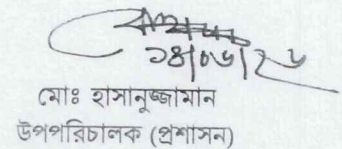 ১৪/০৬/২৬
মোঃ হাসানুজ্জামান
উপপরিচালক (প্রশাসন)